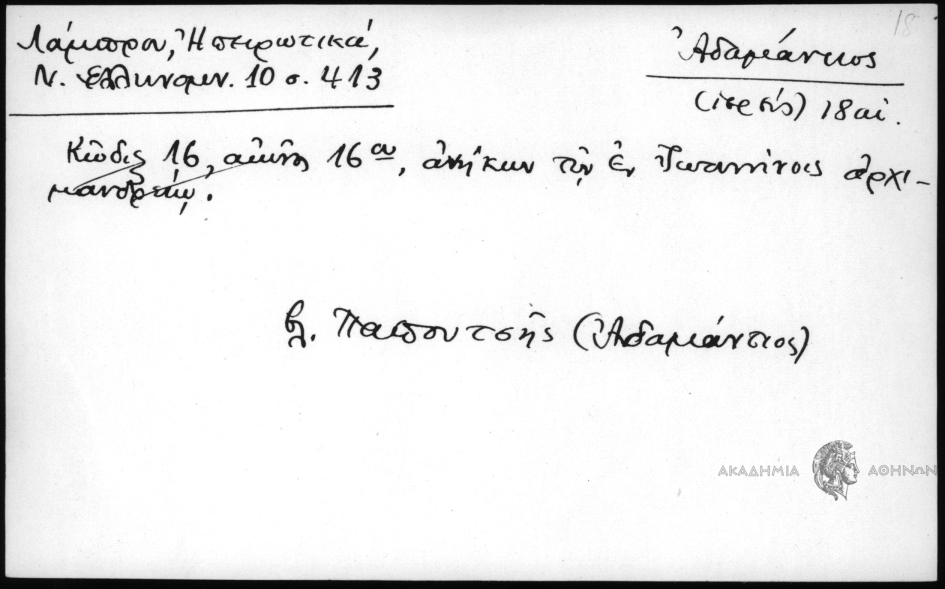 18
Λάμπρου, Ἠπειρωτικά,
Ν. Ἑλληνομν. 10 σ. 413
Ἀδαμάντιος
(ἱερεύς) 18 αἰ.
Κῶδιξ 16, αἰῶνος 16ου, ἀνήκων τῷ ἐν Ἰωαννίνοις ἀρχι-
μανδρείῳ.
βλ. Παπουτσῆς (Ἀδαμάντιος)
ΑΚΑΔΗΜΙΑ ΑΘΗΝΩΝ